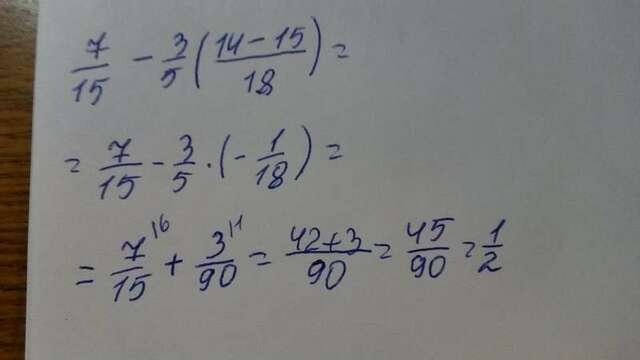 7/15 - 3/5 ( (14 - 15)/18 ) =
= 7/15 - 3/5 · (- 1/18) =
= 7/15 + 3/90 = (42+3)/90 = 45/90 = 1/2